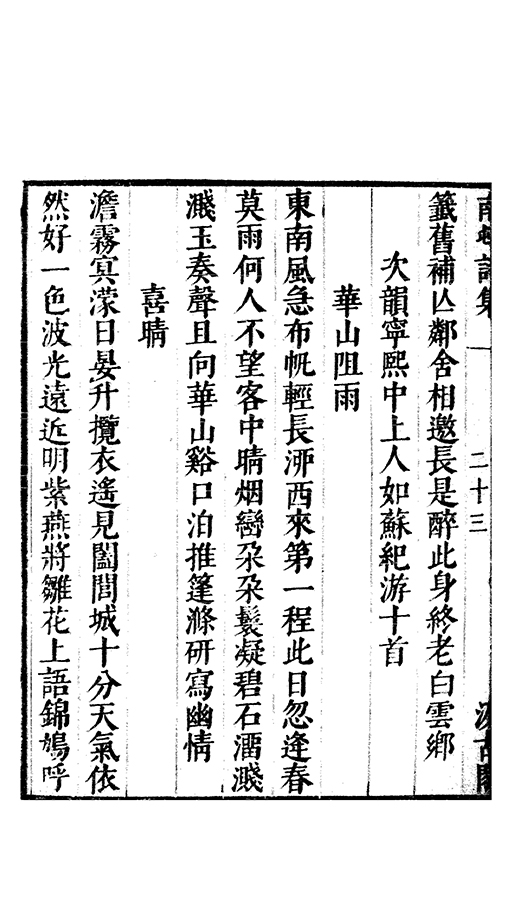 南村詩集 一 二十三 汲古閣
籤舊補亾鄰舍相邀長是醉此身終老白雲鄉
次韻寧熙中上人如蘇紀游十首
華山阻雨
東南風急布帆輕長泖西來第一程此日忽逢春
莫雨何人不望客中晴烟巒朶朶鬟凝碧石溜濺
濺玉奏聲且向華山谿口泊推篷滌研寫幽情
喜晴
澹霧㝠濛日晏升攬衣遙見闔閭城十分天氣依
然好一色波光遠近明紫燕將雛花上語錦鳩呼